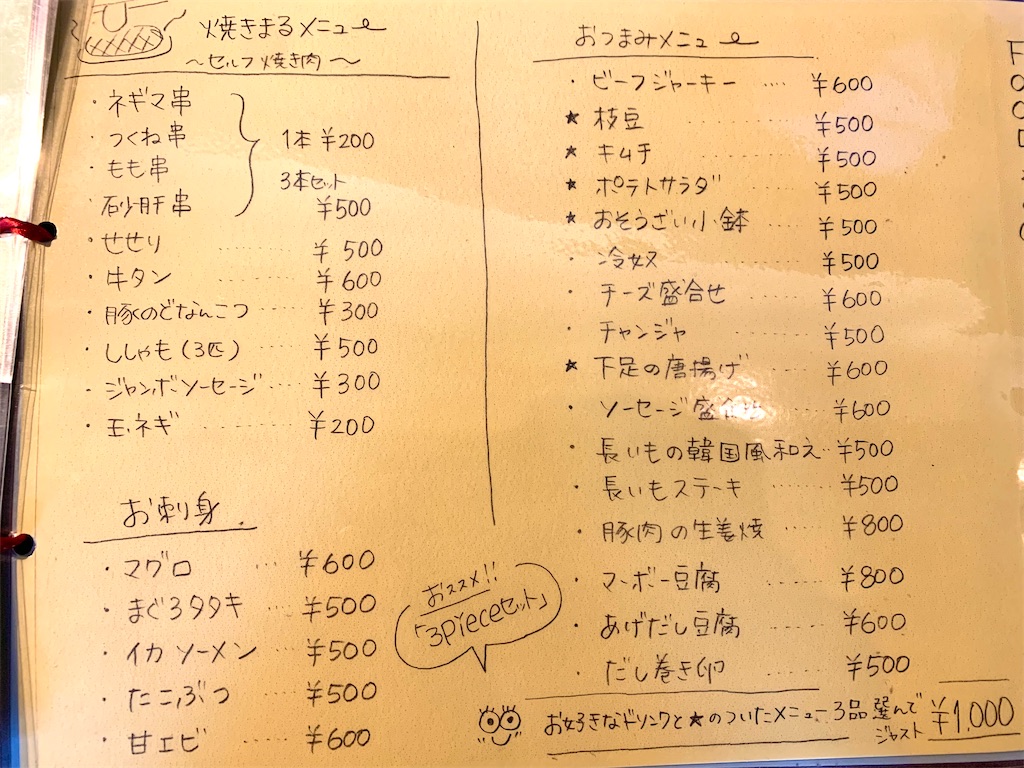 焼きまるメニュー
〜セルフ焼き肉〜
・ネギマ串
・つくね串
・もも串
・砂肝串
1本 ¥200
3本セット
¥500
・せせり ¥500
・牛タン ¥600
・豚のどなんこつ ¥300
・ししゃも(3匹) ¥500
・ジャンボソーセージ ¥300
・玉ネギ ¥200
お刺身
・マグロ ¥600
・まぐろタタキ ¥500
・イカソーメン ¥500
・たこぶつ ¥500
・甘エビ ¥600
おつまみメニュー
・ビーフジャーキー ¥600
★枝豆 ¥500
★キムチ ¥500
★ポテトサラダ ¥500
★おそうざい小鉢 ¥500
・冷奴 ¥500
・チーズ盛合せ ¥600
・チャンジャ ¥500
★下足の唐揚げ ¥600
・ソーセージ盛合せ ¥600
・長いもの韓国風和え ¥500
・長いもステーキ ¥500
・豚肉の生姜焼 ¥800
・マーボー豆腐 ¥800
・あげだし豆腐 ¥600
・だし巻き卵 ¥500
おススメ!!
「3pieceセット」
お好きなドリンクと★のついたメニュー3品選んで
ジャスト ¥1,000